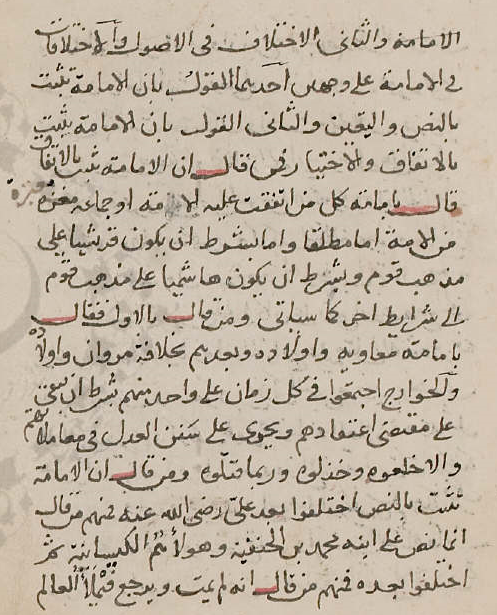 الامامة والثانى الاختلاف فى الاصول والاختلافات
فى الامامة على وجهين احدهما القول بان الامامة تثبت
بالنص واليقين والثانى القول بان الامامة تثبت
بالاتفاق والاختيار فمن قال ان الامامة تثبت بالاتفاق
قال بامامة كل من اتفقت عليه الامة او جماعة معتبرة
من الامة اما مطلقا واما بشرط ان يكون قرشيا على
مذهب قوم وبشرط ان يكون هاشميا على مذهب قوم
الى شرايط اخر كما سياتى ومن قال بالاول فقال
بامامة معاوية واولاده وبعدهم بخلافة مروان واولاده
والخوارج اجتمعوا فى كل زمان على واحد منهم شرط ان يبقى
على مقتضى اعتقادهم ويجرى على سنن العدل فى معاملاتهم
والا خلعوه وخذلوه وربما قتلوه ومن قال ان الامامة
تثبت بالنص اختلفوا بعد على رضى الله عنه فمنهم من قال
انما نص على ابنه محمد بن الحنفية وهولاء هم الكيسانية ثم
اختلفوا بعده فمنهم من قال انه لم يمت ويرجع فيملأ العالم